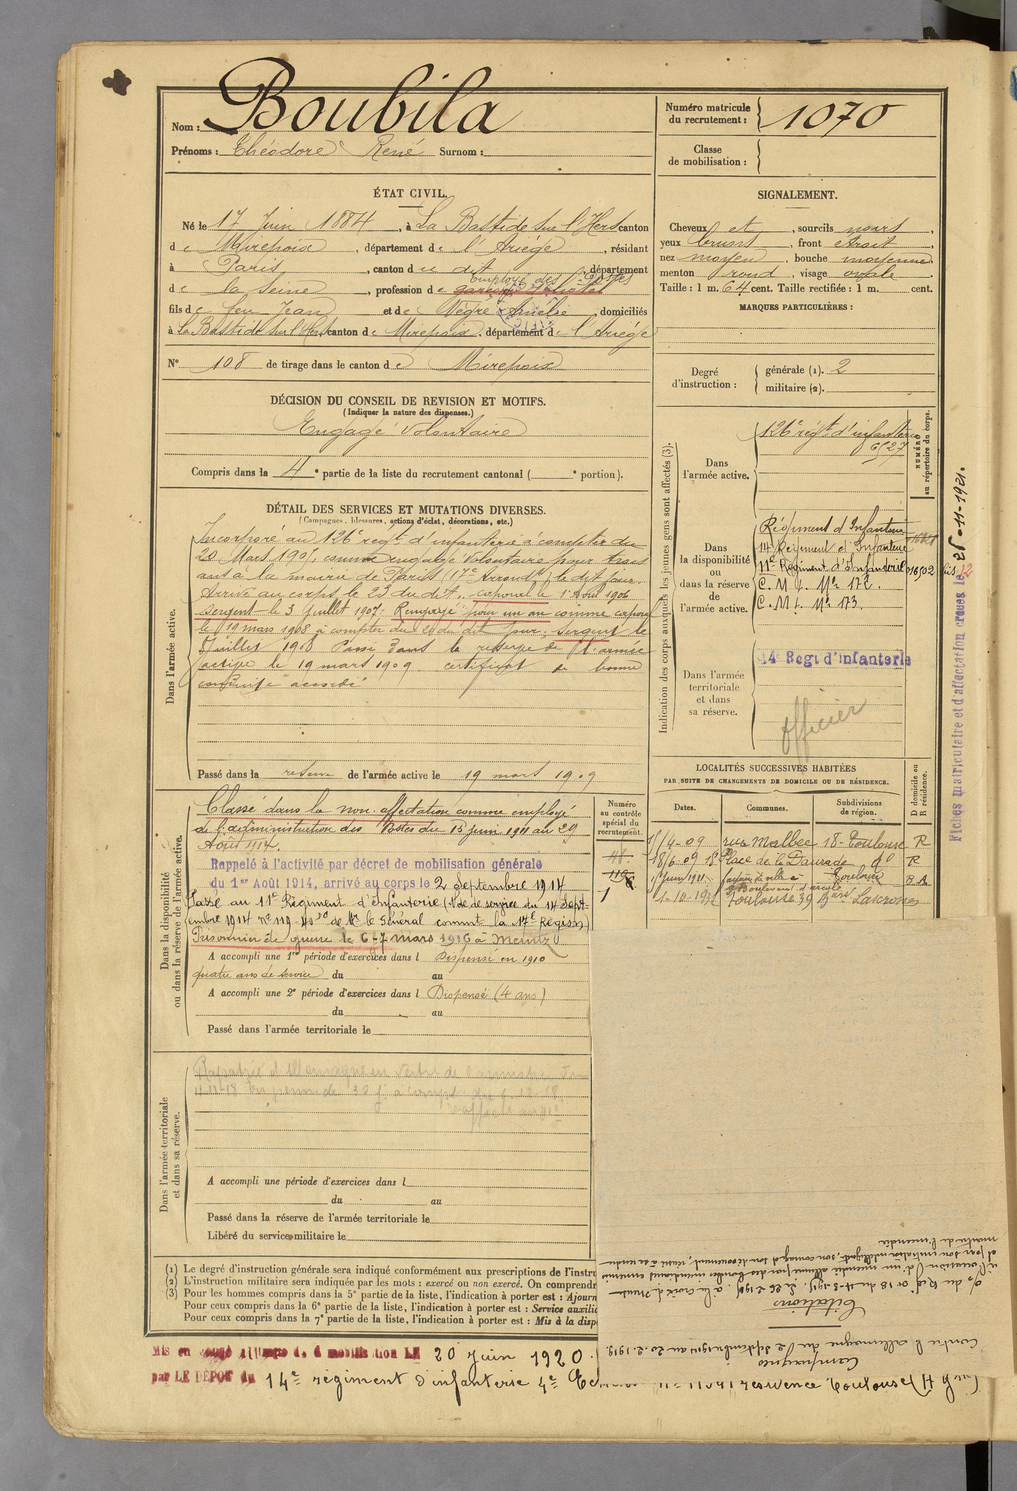 Nom : Boubila
Prénoms : Théodore René Surnom :
Numéro matricule du recrutement : 1070
Classe de mobilisation :
ÉTAT CIVIL.
Né le 17 Juin 1884, à La Bastide sur l'Hers canton
de Mirepoix, département de l'Ariège, résidant
à Paris, canton de dit, département
de la Seine, profession de employé des Postes
fils de feu Jean et de Nègre Amélie, domiciliés
à La Bastide sur l'Hers canton de Mirepoix, département de l'Ariège
N° 108 de tirage dans le canton de Mirepoix
SIGNALEMENT.
Cheveux et, sourcils noirs,
yeux bruns, front étroit,
nez moyen, bouche moyenne
menton rond, visage ovale
Taille : 1 m. 64 cent. Taille rectifiée : 1 m. cent.
MARQUES PARTICULIÈRES :
Degré d'instruction :
générale (1). 2
militaire (2).
DÉCISION DU CONSEIL DE REVISION ET MOTIFS.
(Indiquer la nature des dispenses.)
Engagé Volontaire
Compris dans la 4e partie de la liste du recrutement cantonal ( e portion).
DÉTAIL DES SERVICES ET MUTATIONS DIVERSES.
(Campagnes, blessures, actions d'éclat, décorations, etc.)
Dans l'armée active.
Incorporé au 126e régt d'infanterie à compter du
20 Mars 1905, comme engagé volontaire pour trois
ans à la mairie de Paris (17e Arrondt) le dit jour.
Arrivé au corps le 23 du dit, caporal le 1 Août 1906
Sergent le 3 Juillet 1907. Rengagé pour un an comme caporal
le 19 mars 1908 à compter du 20 du dit, Sergent le
Juillet 1908 Passé dans la réserve de l'armée
active le 19 mars 1909 certificat de bonne
conduite "accordé"
Passé dans la réserve de l'armée active le 19 mars 1909
Indication des corps auxquels les jeunes gens sont affectés (3).
NUMÉRO au répertoire du corps.
Dans l'armée active.
126e régt d'infanterie
6527
Dans la disponibilité ou dans la réserve de l'armée active.
Régiment d'Infanterie
14 Régiment d'Infanterie
11e Régiment d'Infanterie 016502 bis 12
C. M. t. Nr 172.
C. M t. Nr 173.
Dans l'armée territoriale et dans sa réserve.
14e Regt d'infanterie
Officier
LOCALITÉS SUCCESSIVES HABITÉES
PAR SUITE DE CHANGEMENTS DE DOMICILE OU DE RÉSIDENCE.
Dates. Communes. Subdivisions de région. D domicile ou R résidence.
/4-09 rue Malbec 18 - Toulouse R
18/6-09 Place de la Daurade do R
Juin 1911 Toulouse
1-10-19 Boulevard d'arcole
Toulouse 39 Bard Lascrosses
Numéro au contrôle spécial du recrutement.
Dans la disponibilité ou dans la réserve de l'armée active.
Classé dans la non-affectation comme employé
de l'administration des Postes du 15 juin 1911 au 29
Août 1914.
Rappelé à l'activité par décret de mobilisation générale
du 1er Août 1914, arrivé au corps le 2 Septembre 1914
Passé au 11e Régiment d'Infanterie (Note de service du 14 Sept-
embre 1914 No 119 de Mr le Général commt la 17e Région)
Prisonnier de guerre le 6-7 mars 1916 à
A accompli une 1re période d'exercices dans l Dispensé en 1910
quatre ans de service du au
A accompli une 2e période d'exercices dans l Dispensé (4 ans)
du au
Passé dans l'armée territoriale le
Dans l'armée territoriale et dans sa réserve.
Rapatrié d'Allemagne en vertu de l'armistice
11-11-18 En perm de 30 j. à compt du
A accompli une période d'exercices dans l
du au
Passé dans la réserve de l'armée territoriale le
Libéré du service militaire le
(1) Le degré d'instruction générale sera indiqué conformément aux prescriptions de l'instru
(2) L'instruction militaire sera indiquée par les mots : exercé ou non exercé. On comprend
(3) Pour les hommes compris dans la 5e partie de la liste, l'indication à porter est : Ajourn
Pour ceux compris dans la 6e partie de la liste, l'indication à porter est : Service auxilia
Pour ceux compris dans la 7e partie de la liste, l'indication à porter est : Mis à la disp
Mis en congé illimité de démobilisation LE 20 Juin 1920.
par LE DÉPOT du 14e régiment d'infanterie 4e résidence, Toulouse
Fiches matriculaire et d'affectation créées le 25-11-1921.
Campagnes
Contre l'allemagne du 2 septembre 1914 au 20.2.1919.
Citations